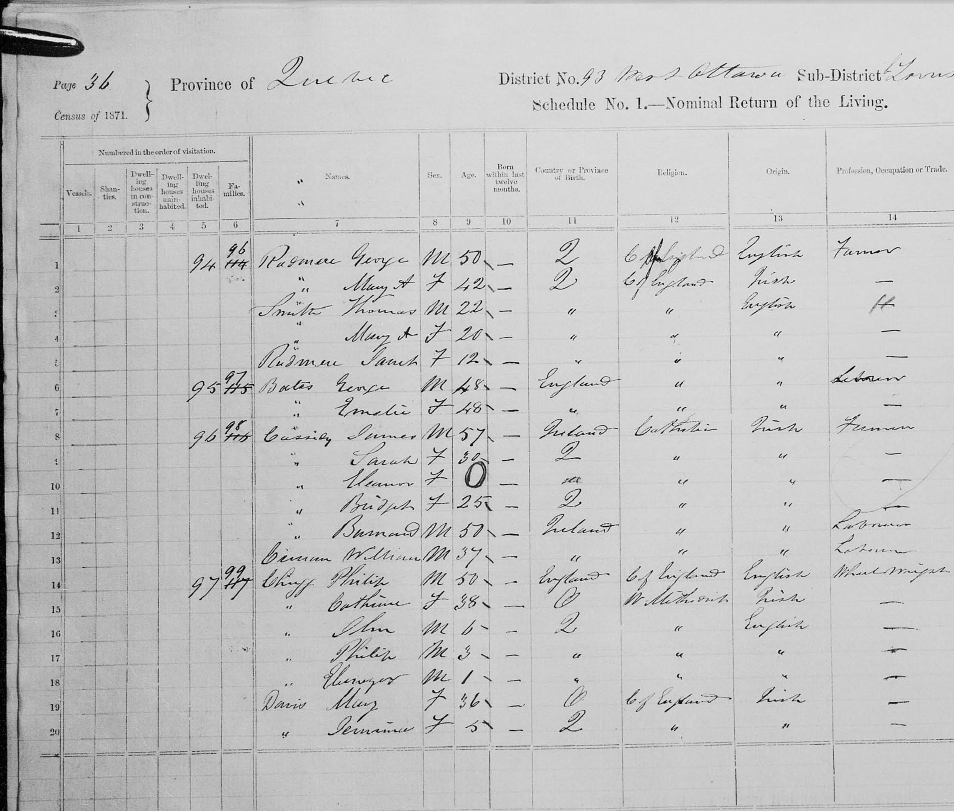 Page 36 } Province of Quebec District No. 93 West Ottawa Sub-District
Census of 1871. Schedule No. 1.—Nominal Return of the Living.
Numbered in the order of visitation.
Vessels. Shan-ties. Dwell-ing houses in con-struc-tion. Dwell-ing houses unin-habited. Dwel-ling houses inhabi-ted. Fa-milies. " Names. " Sex. Age. Born within last twelve months. Country or Province of Birth. Religion. Origin. Profession, Occupation or Trade.
1 2 3 4 5 6 7 8 9 10 11 12 13 14
1 94 96 Radmore George M 50 — Q C of England English Farmer
2 " Mary A F 42 — Q C of England Irish —
3 Smith Thomas M 22 — " " English
4 " Mary A F 20 — " " " —
5 Radmore Janet F 12 — " " " —
6 95 97 Bates George M 48 — England " " Labourer
7 " Emelie F 48 — " " " —
8 96 98 Cassidy James M 57 — Ireland Catholic Irish Farmer
9 " Sarah F 30 — Q " " —
10 " Eleanor F 0 — " " —
11 " Bridget F 25 — Q " " —
12 " Barnard M 50 — Ireland " " Labourer
13 William M 37 — " " " Labourer
14 97 99 Philip M 50 — England C of England English Wheel Wright
15 " Cathrine F 38 — O W Methodist Irish —
16 " John M 6 — Q " English —
17 " Philip M 3 — " " " —
18 " Ebenezer M 1 — " " " —
19 Davis Mary F 36 — O C of England Irish —
20 " Jemima F 5 — Q " " —